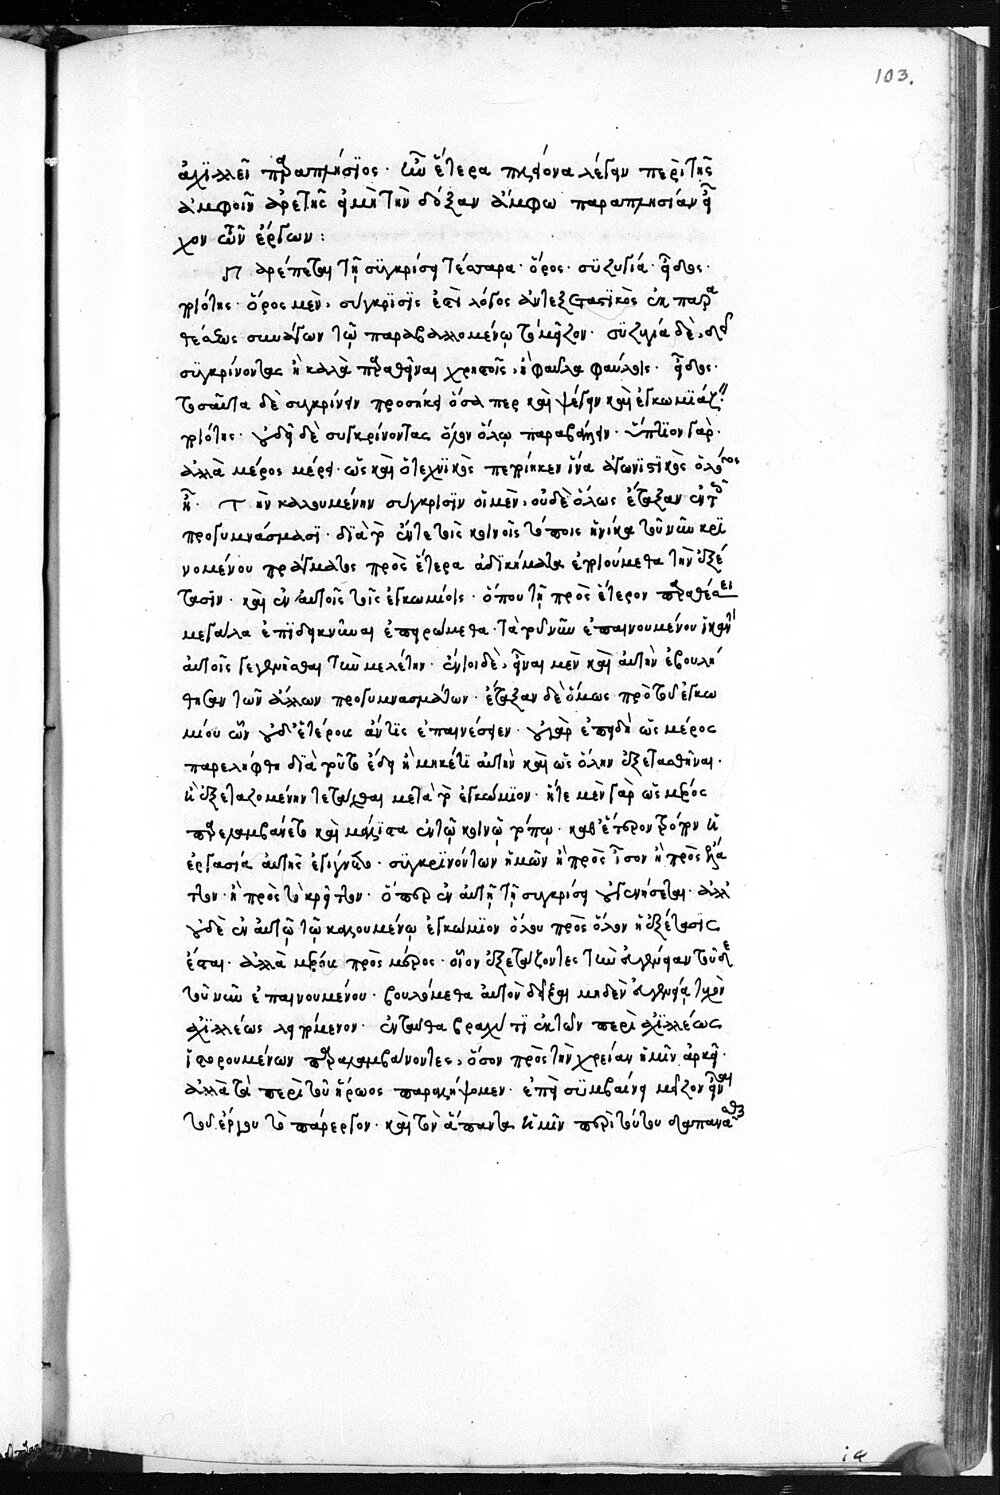 103.
ἀχϊλλεῖ παραπλήσϊος· ὧν ἕτερα πλείονα λέγειν περὶ τῆς
ἀμφοῖν ἀρετῆς εἰ μὴ τὴν δόξαν ἄμφω παραπλησίαν εἶ
χον τῶν ἔργων:
Παρέπεται τῇ συγκρίσει τέσσαρα· ὅρος· συζυγία· εἶδος·
χρόνος· ὅρος μὲν, σύγκρϊσϊς ἐστὶ λόγος ἀντεξεταστϊκὸς ἐκ παρα
θέσεως συνάγων τῷ παραβαλλομένῳ τὸ μεῖζον· συζυγία δὲ,
συγκρίνοντας ἢ καλὰ παραθεῖναι χρηστοῖς, ἢ φαῦλα φαύλοις· εἶδος·
τοσαῦτα δὲ συγκρίνειν προσήκει ὅσα περ καὶ ψέγειν καὶ ἐγκωμϊάζειν·
οὐ δεῖ δὲ συγκρίνοντας ὅλον ὅλῳ παραβάλλειν· ὕπτϊον γὰρ·
ἀλλὰ μέρος μέρει· ὡς καὶ ὁ τεχνϊκὸς ἵνα ἀγωνϊστϊκὸς ὁ λόγος
ᾖ· Τὴν καλουμένην συγκρισϊν οἱ μὲν, οὐδὲ ὅλως ἔταξαν ἐν τοῖς
προγυμνάσμασϊ· δϊὰ τὸ ἔν τε τοῖς κοινοῖς τόποις ἡνίκα τοῦ νῦν κρϊ
νομένου πράγματος πρὸς ἕτερα ἀδϊκήματα ἐποιούμεθα τὴν ἐξέ
τασϊν· καὶ ἐν αὐτοῖς τοῖς ἐγκωμίοις· ὅπου τῇ πρὸς ἕτερον παραθέσει
μεγάλα ἐπϊδεικνῦναι ἐπειρώμεθα· τὰ τοῦ νῦν ἐπαινουμένου ἱκανὴν
αὐτοῖς γεγενῆσθαι τὴν μελέτην· ἔνιοι δὲ, εἶναι μὲν καὶ αὐτὴν ἐβουλή
θησαν τῶν ἄλλων προγυμνασμάτων· ἔταξαν δὲ ὅμως πρὸ τοῦ ἐγκω
μίου ὧν οὐδ' ἑτέροις ἄν τϊς ἐπαινέσειεν· οὐ γὰρ ἐπειδὴ ὡς μέρος
παρελήφθη δϊὰ τοῦτο ἔδει ἢ μηκέτϊ αὐτὴν καὶ ὡς ὅλην ἐξετασθῆναι·
ἢ ἐξεταζομένην τετάχθαι μετὰ τὸ ἐγκώμϊον· ἥ τε μὲν γὰρ ὡς μέρος
παρελαμβάνετο καὶ μάλϊστα ἐν τῷ κοινῷ τόπῳ· καθ' ἕτερον τρόπον ἡ
ἐργασία αὐτῆς ἐγίγνετο· συγκρϊνόντων ἡμῶν ἢ πρὸς ἶσον ἢ πρὸς ἔλα
τον· ἢ πρὸς τὸ κρεῖττον· ὅπερ ἐν αὐτῇ τῇ συγκρίσει οὐ γενήσεται· ἀλλ'
οὐδὲ ἐν αὐτῷ τῷ καλουμένῳ ἐγκώμϊον ὅλου πρὸς ὅλον ἡ ἐξέτασϊς
ἔσται· ἀλλὰ μέρους πρὸς μέρος· οἷον ἐξετάζοντες τὴν εὐγένειαν τοῦδε
τοῦ νῦν ἐπαινουμένου· βουλόμεθα αὐτὸν δεῖξαι μηδὲν εὐγενείᾳ τῶν
ἀχϊλλέως λειπόμενον· ἐνταῦθα βραχύ τϊ ἐκ τῶν περὶ ἀχϊλλέως
ἱστορουμένων παραλαμβάνοντες, ὅσον πρὸς τὴν χρείαν ἡμῖν ἀρκεῖ·
ἀλλὰ τὰ περὶ τοῦ ἥρωος παραλείψομεν· ἐπεὶ συμβαίνει μεῖζον εἶναι
τοῦ ἔργου τὸ πάρεργον· καὶ τὸν ἅπαντα ἡμῖν περὶ τούτου δαπανᾶσθαι
ια